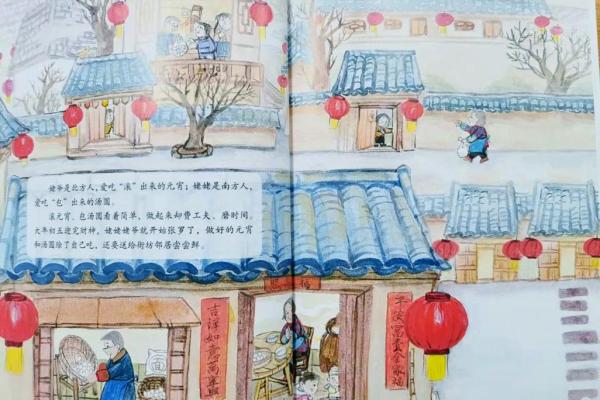 姥爷是北方人，爱吃“滚”出来的元宵；姥姥是南方人，
爱吃“包”出来的汤圆。
滚元宵、包汤圆看着简单，做起来却费工夫、磨时间。
大年初五迎完财神，姥姥姥爷就开始张罗了，做好的元宵
和汤圆除了自己吃，还要送给街坊邻居尝尝鲜。
吉祥如意萬事興
平安富貴全家福
面